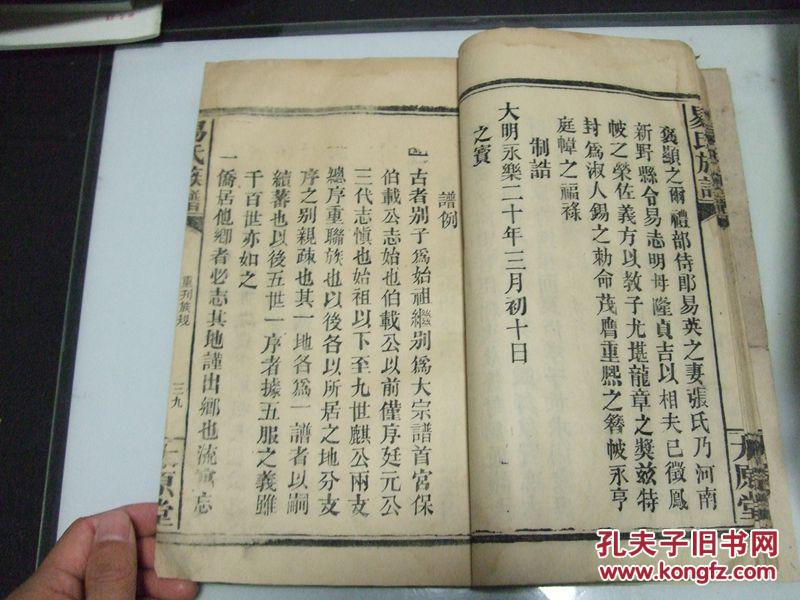 易氏族譜
太原堂
褒顯之爾禮部侍郎易英之妻張氏乃河南
新野縣令易志明母隆貞吉以相夫已徵鳳
帔之榮佐義方以教子尤堪龍章之獎玆特
封爲淑人錫之勅命茂膺重熙之簪帔永亨
庭幃之福祿
制誥
大明永樂二十年三月初十日
之寳
譜例
一古者别子爲始祖繼别爲大宗譜首宫保
伯載公志始也伯載公以前僅序廷元公
三代志愼也始祖以下至九世麒公兩支
總序重聯族也以後各以所居之地分支
序之别親疎也其一地各爲一譜者以嗣
續蕃也以後五世一序者據五服之義雖
千百世亦如之
一僑居他鄉者必志其地謹出鄉也流寓忘
易氏族譜
重刊族規
三九
太原堂
孔夫子旧书网
www.kongfz.com